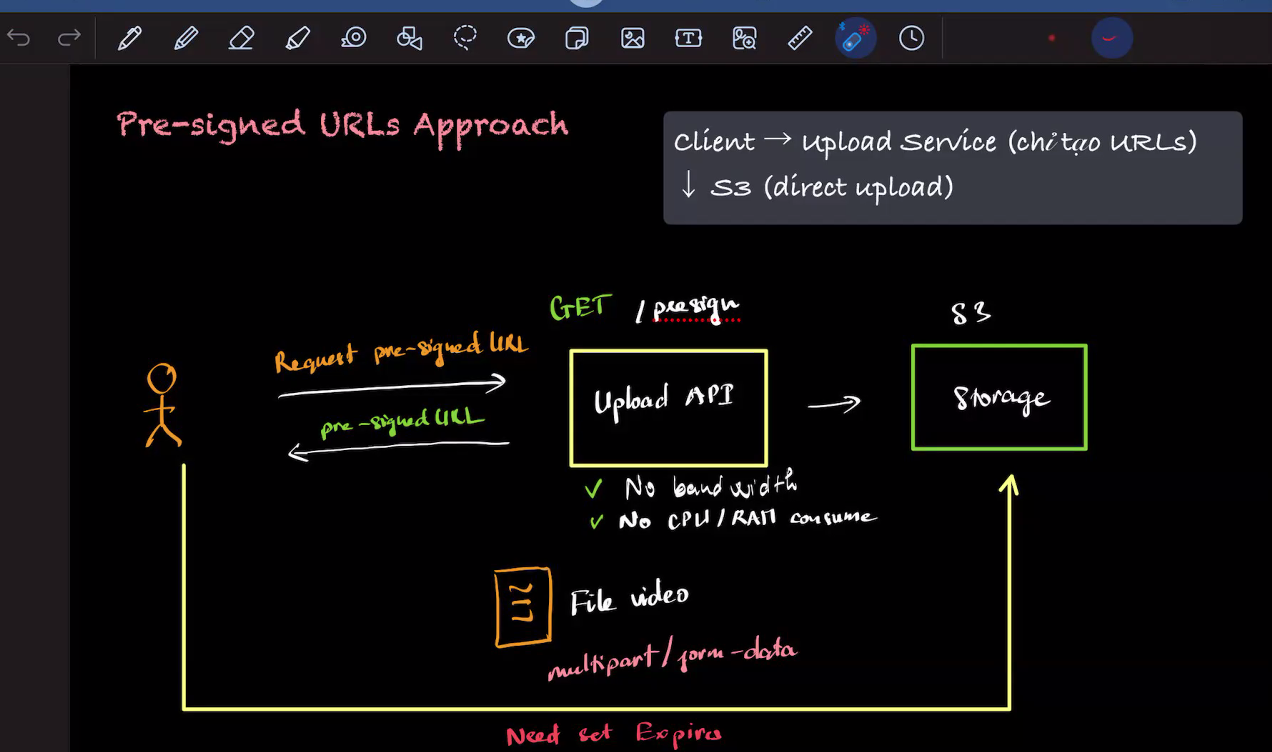 Pre-signed URLs Approach
Client → Upload Service (chỉ tạo URLs)
↓ S3 (direct upload)
GET /presign
S3
Request pre-signed URL
Upload API
Storage
pre-signed URL
✓ No band width
✓ No CPU/RAM consume
File video
multipart/form-data
Need set Expires